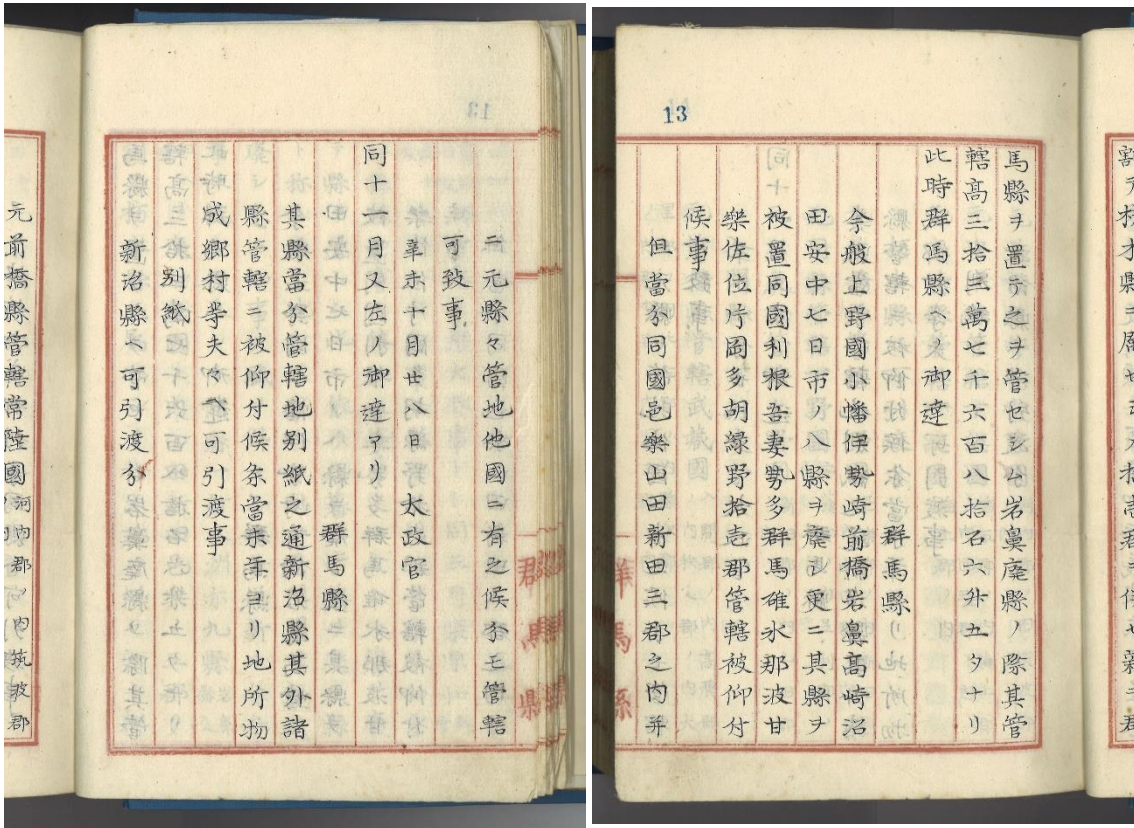 13
馬縣ヲ置テ之ヲ管セシム岩鼻廢縣ノ際其管
轄高三拾三萬七千六百八拾石六升五夕ナリ
此時群馬縣ヘノ御達
群馬縣
今般上野國小幡伊勢崎前橋岩鼻高崎沼
田安中七日市ノ八縣ヲ廢シ更ニ其縣ヲ
被置同國利根吾妻勢多群馬碓氷那波甘
樂佐位片岡多胡緑野拾壱郡管轄被仰付
候事
但當分同國邑樂山田新田三郡之内并
ニ元縣々管地他國ニ有之候分モ管轄
可致事
辛未十月廿八日 太政官
同十一月又左ノ御達アリ
群馬縣
其縣當分管轄地別紙之通新治縣其外諸
縣管轄ニ被仰付候条當未年ヨリ地所物
成郷村等夫々ヘ可引渡事
別紙
新治縣ヘ可引渡分
元前橋縣管轄常陸國河内郡ノ内筑波郡